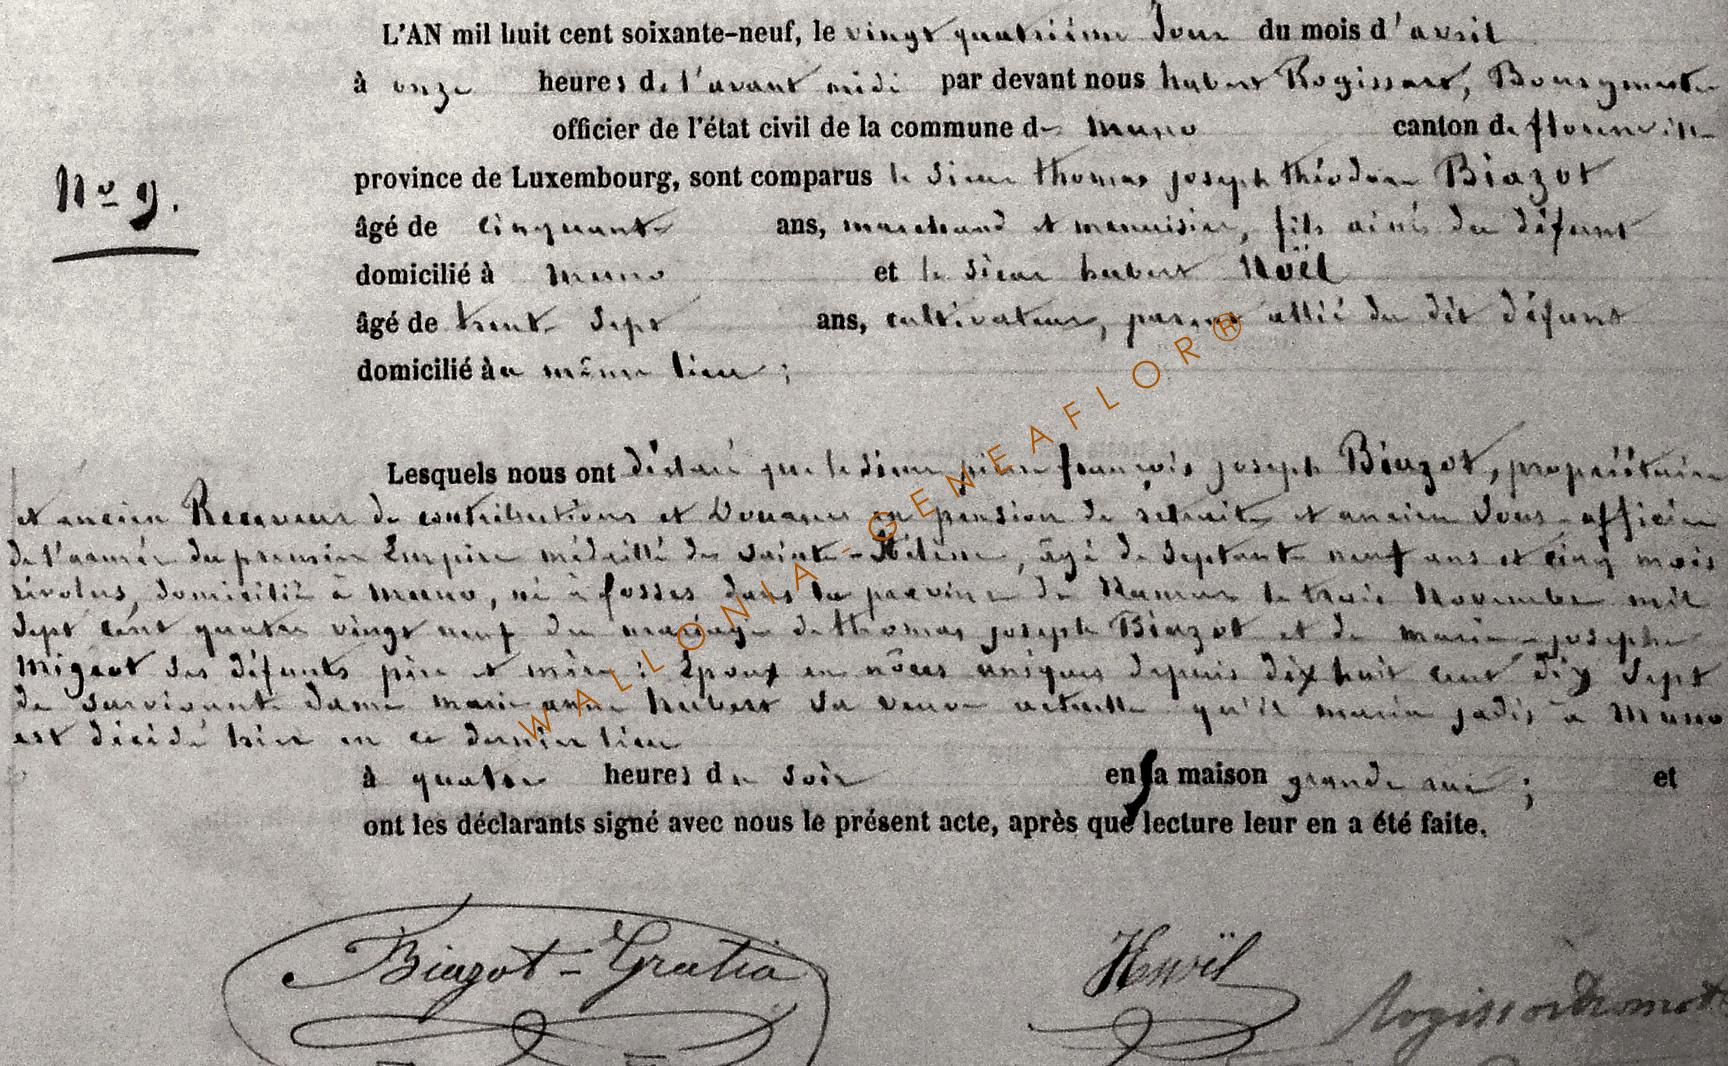 L'AN mil huit cent soixante-neuf, le vingt quatrième Jour du mois d'avril
à onze heures de l'avant midi par devant nous hubert Rogissart, Bourgmestre
officier de l'état civil de la commune de Muno canton de florenville
N° 9.
province de Luxembourg, sont comparus le sieur thomas joseph théodore Biazot
âgé de cinquante ans, marchand et menuisier, fils ainé du défunt
domicilié à Muno et le sieur hubert Noël
âgé de trente sept ans, cultivateur, parent allié du dit défunt
domicilié au même lieu ;
Lesquels nous ont déclaré que le sieur pierre françois joseph Biazot, propriétaire
et ancien Receveur de contributions et Douanes en pension de retraite et ancien Sous-officier
de l'armée du premier Empire médaillé de Sainte-Hélène, âgé de septante neuf ans et cinq mois
révolus, domicilié à Muno, né à fosses dans la province de Namur le trois Novembre mil
sept cent quatre vingt neuf du mariage de thomas joseph Biazot et de marie-josephe
Migeot ses défunts père et mère : Epoux en nôces uniques depuis dix huit cent dix sept
de survivante dame marie anne hubert sa veuve actuelle qu'il maria jadis à Muno
est décédé hier en ce dernier lieu
à quatre heures du soir en sa maison grande rue ; et
ont les déclarants signé avec nous le présent acte, après que lecture leur en a été faite.
Biazot-Gratia HNoël Rogissart
WALLONIA-GENEAFLOR®